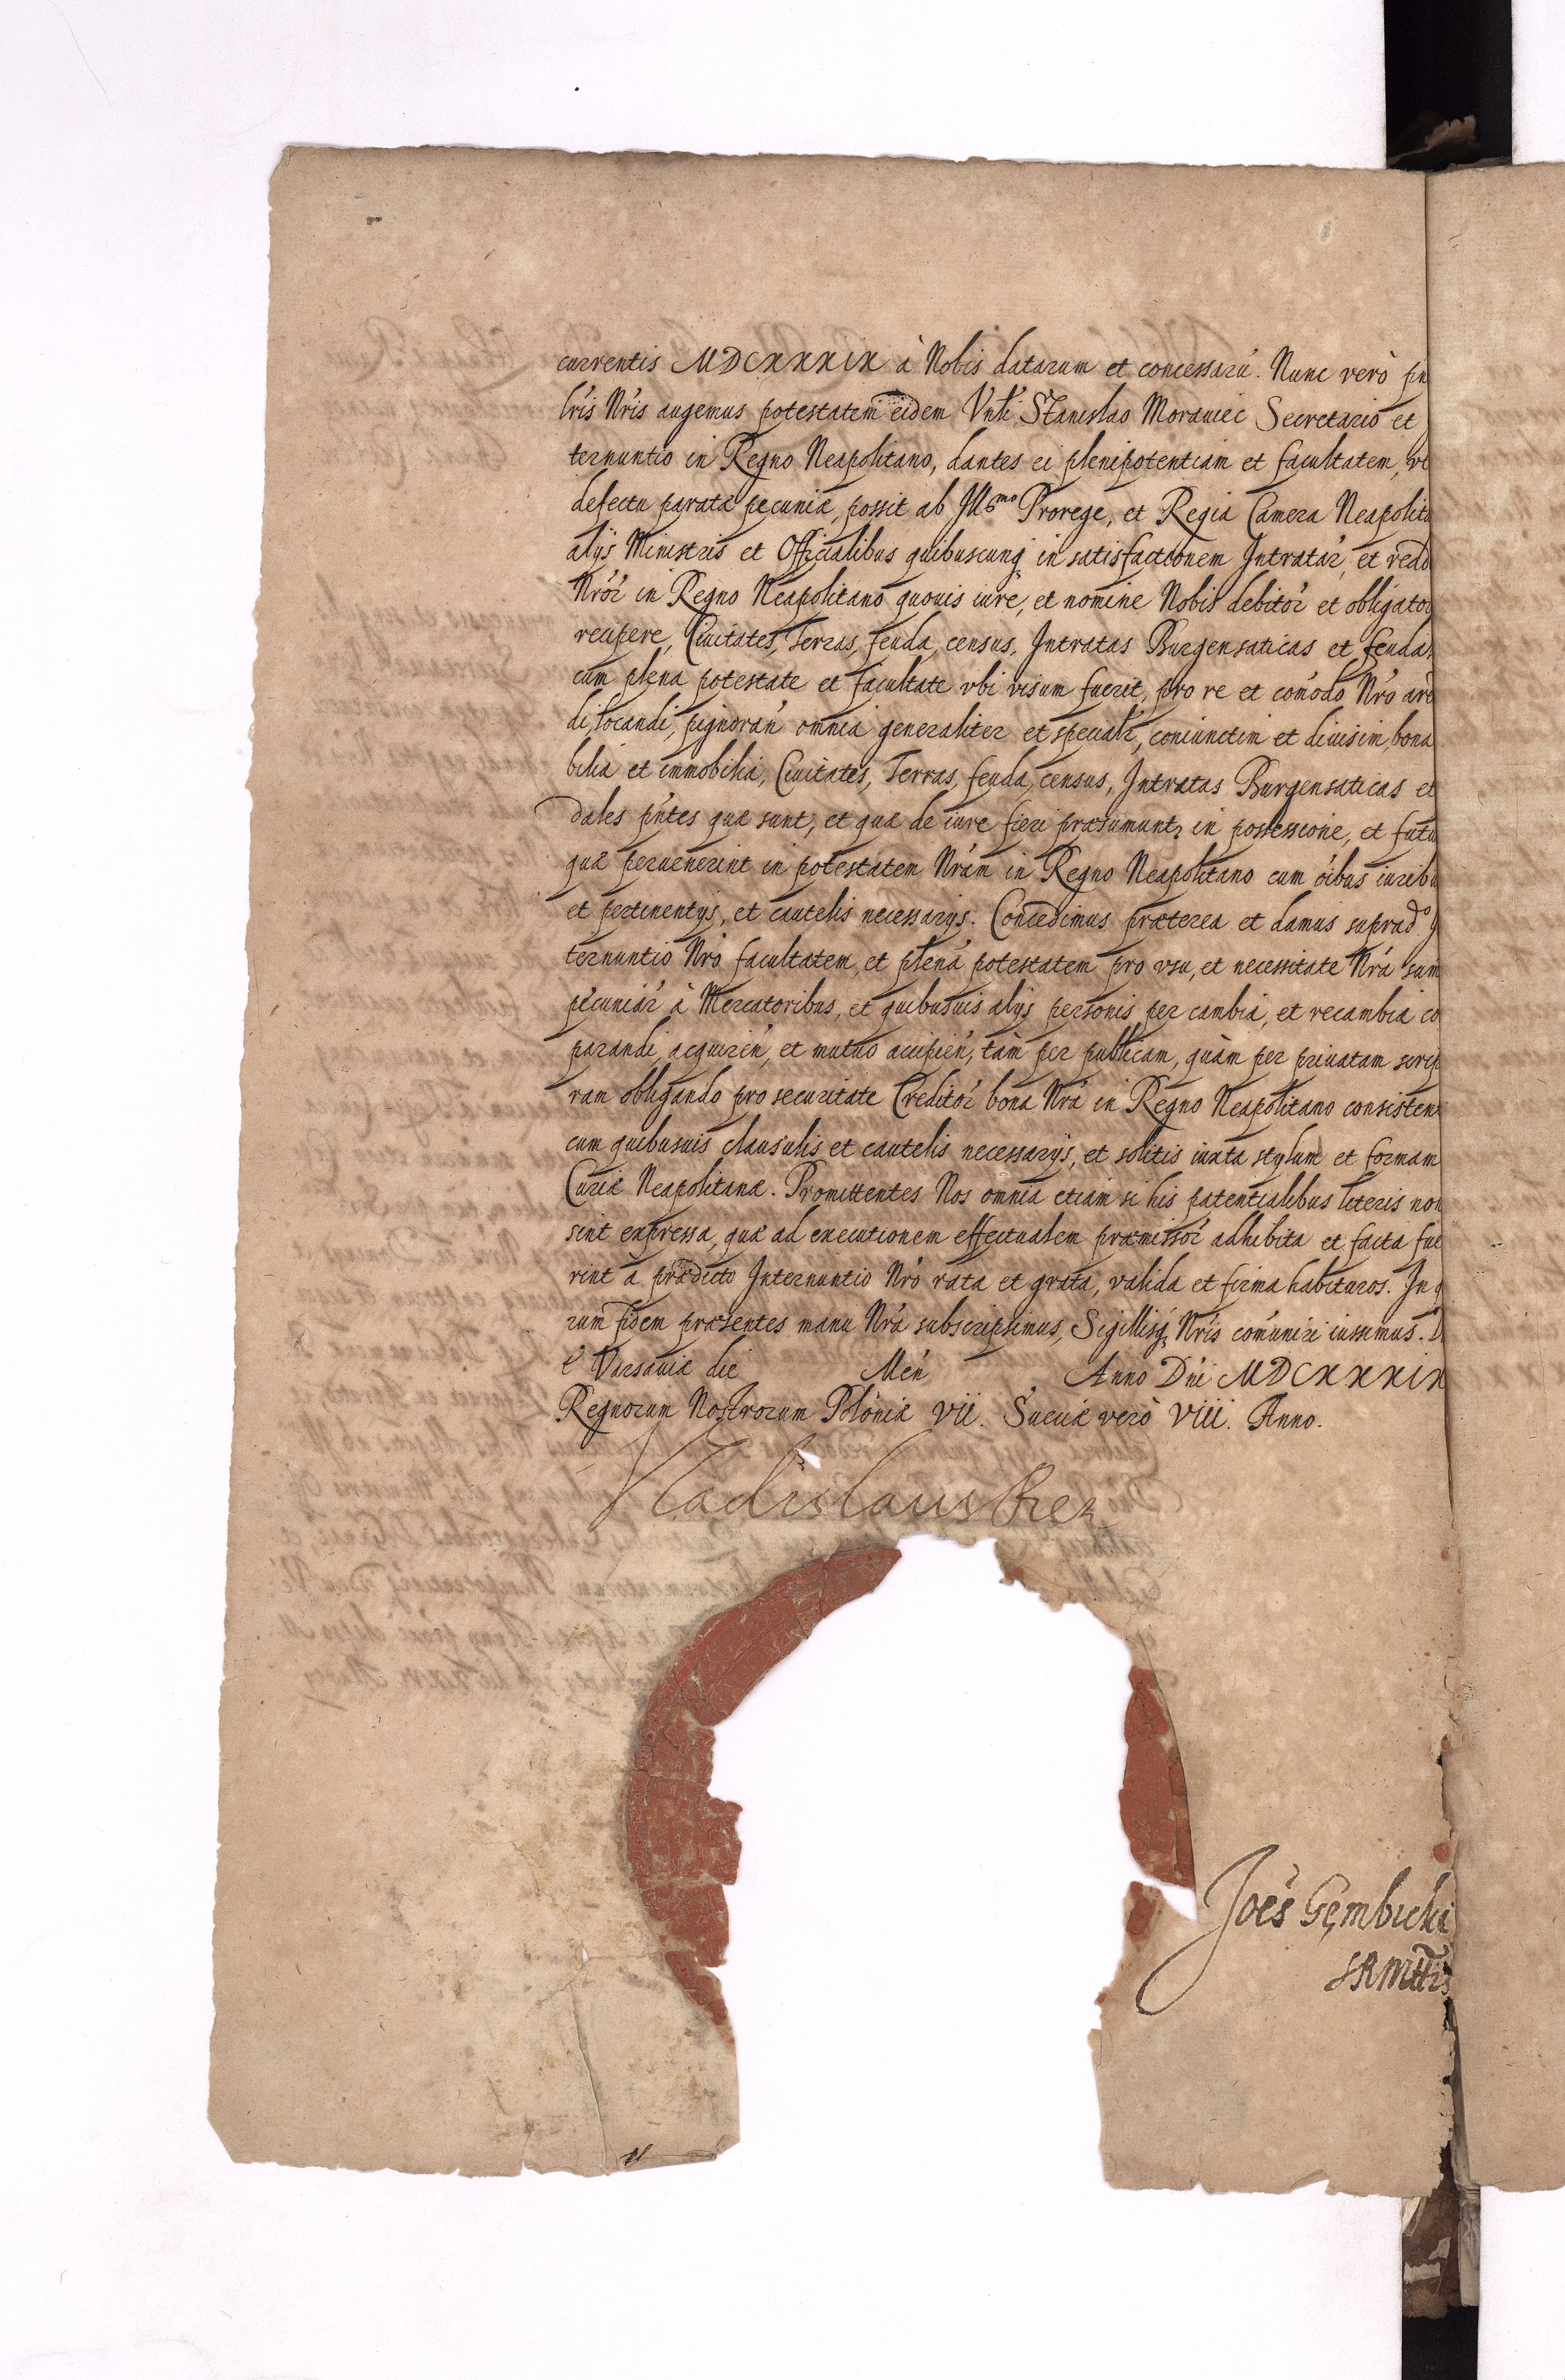 currentis MDCXXXIX à Nobis datarum et concessarú. Nunc verò pn
lrís Nrís augemus potestatem eidem Vrbi Stanislao Morauiec Secretario et
ternuntio in Regno Neapolitano, dantes ei plenipotentiam et facultatem, vt
defectu parata pecuniæ, possit ab Illmo Prorege, et Regia Camera Neapolita
alijs Ministris et Officialibus quibuscunq in satisfactionem Intratar, et redd
Nror in Regno Neapolitano quouis iure, et nomine Nobis debitor et obligator
recipere, Ciuitates, Terras, feuda, census, Intratas Burgensaticas et feudal
cum plena potestate et facultate vbi visum fuerit, pro re et comodo Nro are
di, locandi, pignoran omnia generaliter et specialr, coniunctim et diuisim bona
bilia et immobilia, Ciuitates, Terras, feuda, census, Intratas Burgensaticas et
dales pntes quæ sunt, et quæ de iure fieri præsumunt, in possessione, et futu
quæ peruenerint in potestatem Nram in Regno Neapolitano cum oibus iuribu
et pertinentijs, et cautelis necessarijs. Concedimus præterea et damus suprado I
ternuntio Nro facultatem et plená potestatem pro vsu, et necessitate Nrá sum
pecuniar à Mercatoribus, et quibusuis alijs personis per cambia, et recambia co
parandi, acquiren, et mutuo accipien, tàm per publicam, quàm per priuatam scrip
ram obligando pro securitate Creditor bona Nra in Regno Neapolitano consisten
cum quibusuis clausulis et cautelis necessarijs, et solitis iuxta stylum et formam
Curiæ Neapolitanæ. Promittentes Nos omnia etiam si his patentialibus literis non
sint expressa, quæ ad executionem effectualem præmissor adhibita et facta fue
rint a prædicto Internuntio Nro rata et grata, valida et firma habituros. In q
rum fidem præsentes manu Nra subscripsimus, Sigillisq Nris comuniri iussimus. D
é Varsauiæ die Men Anno Dni MDCXXXIX
Regnorum Nostrorum Poloniæ VII. Sueciæ verò VIII. Anno.
Vladislaus Rex
Joes Gembicki
SRMttis